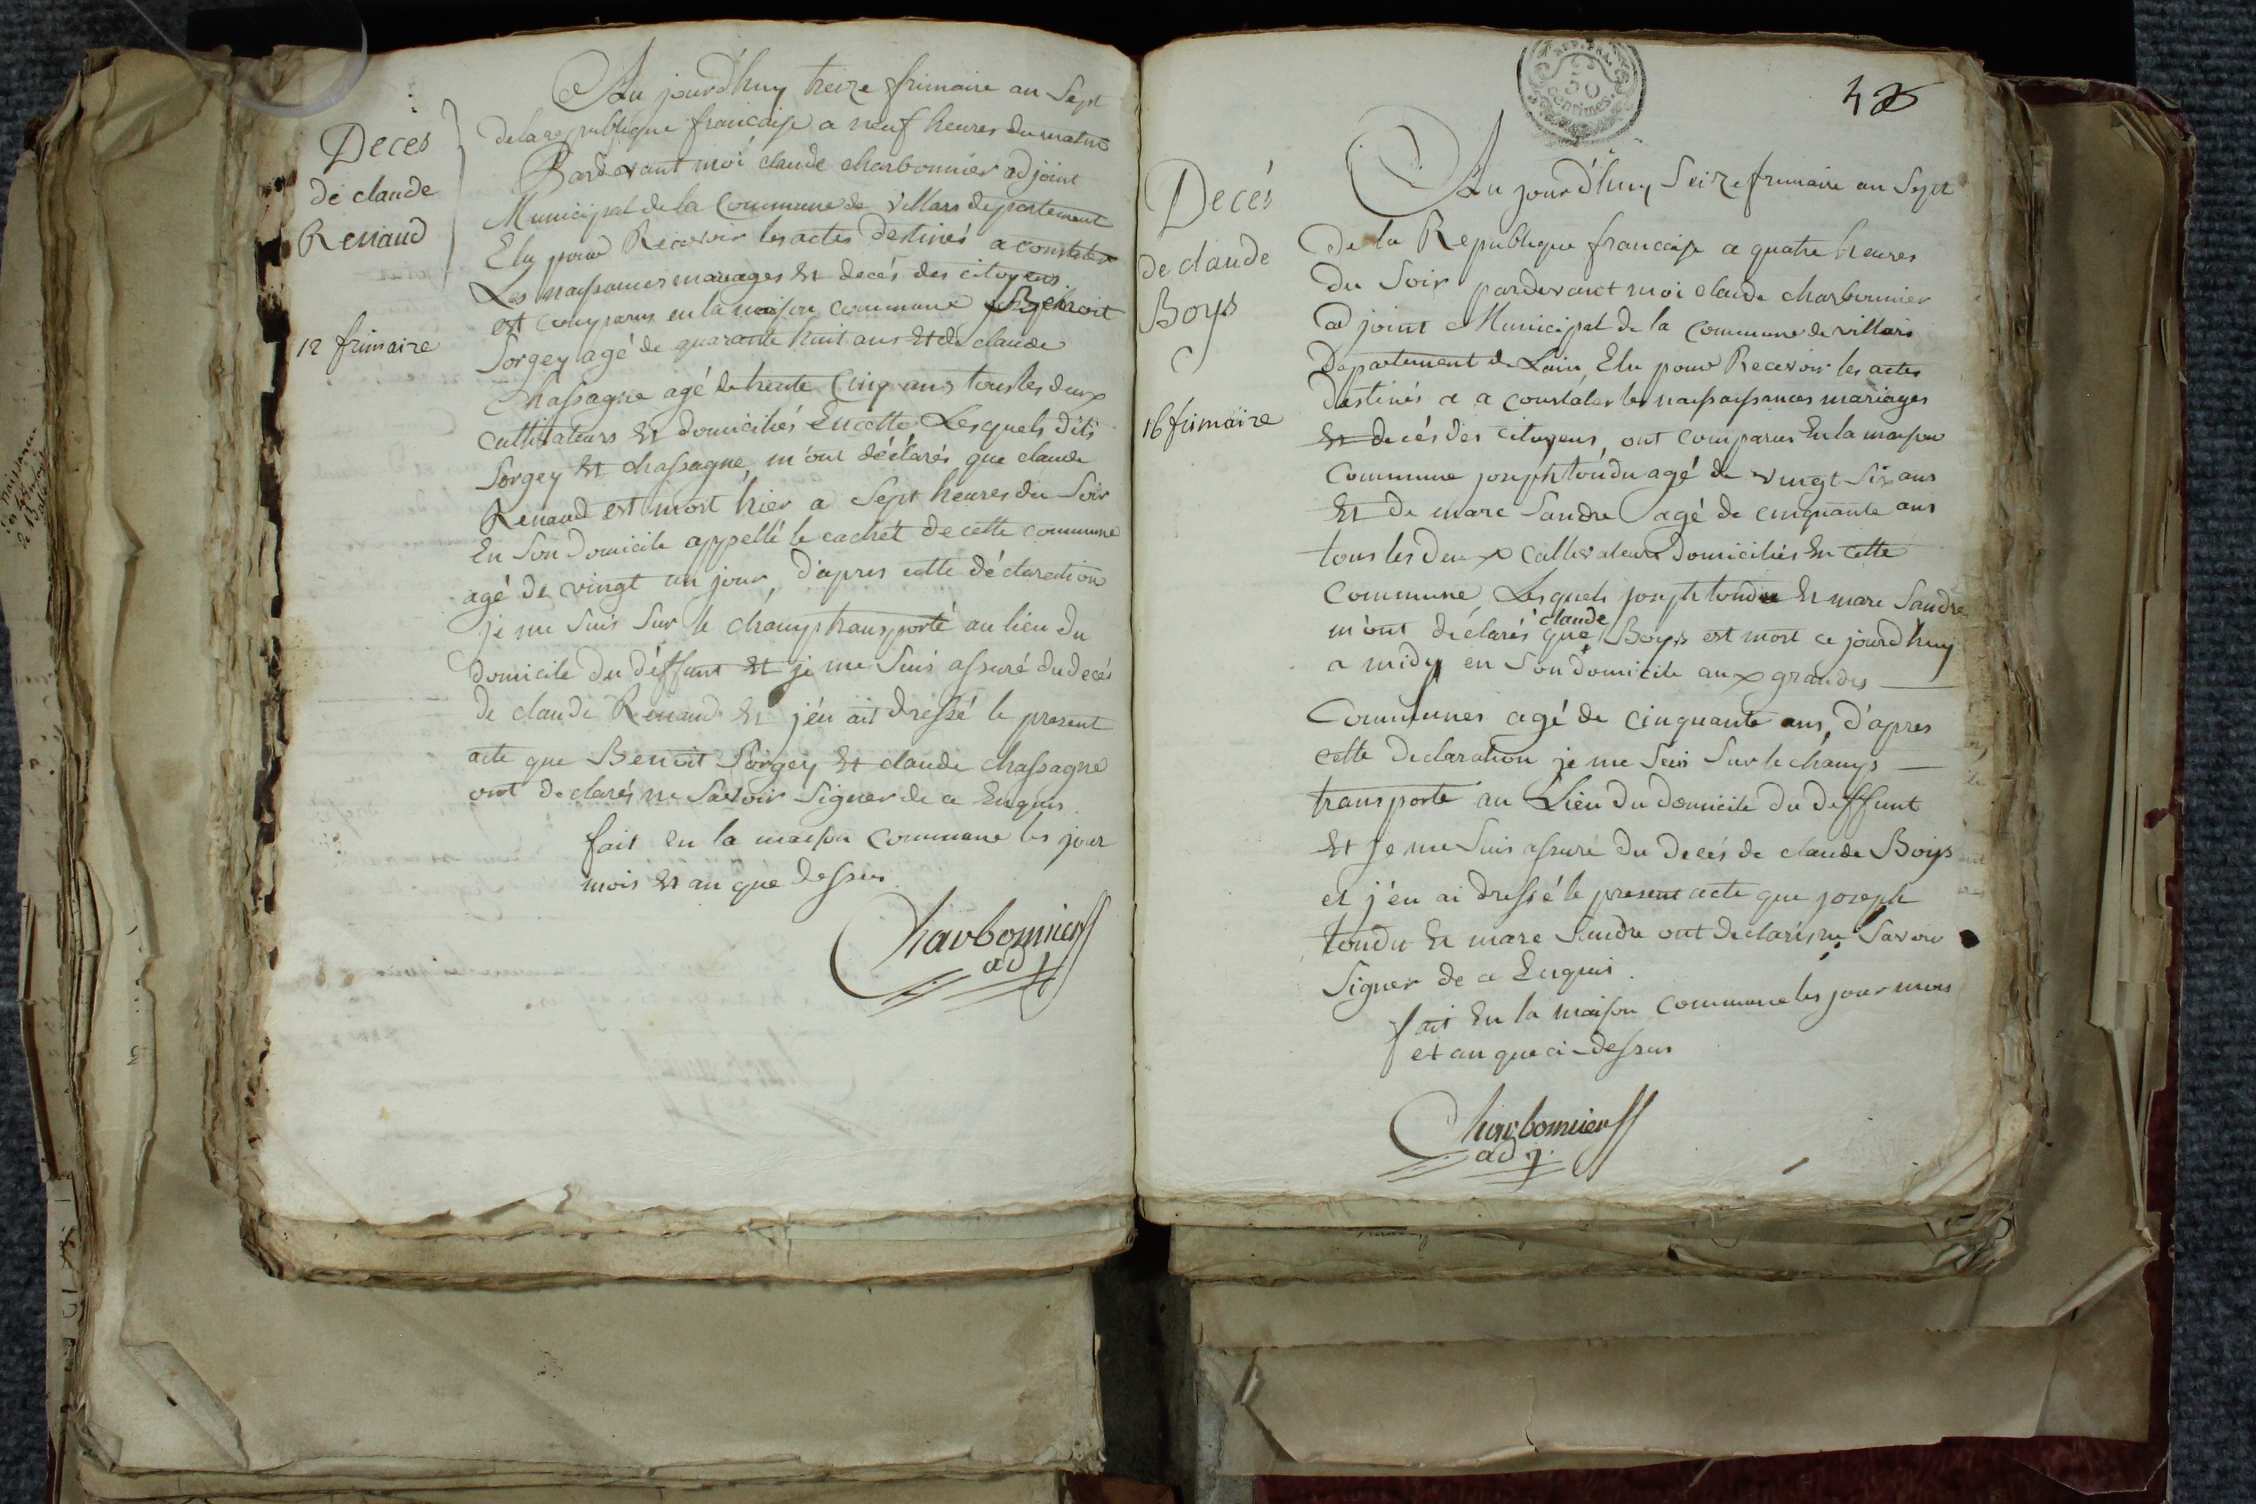 Deces
de claude
Renaud
12 frimaire
Au jourd'huy treize frimaire an Sept
de la republique francaise a neuf heures du matin
Pardevant moi claude charbonnier adjoint
Municipal de la Commune de villars departement
Elu pour Recevoir les actes destinés a constater
Les naissances mariages Et decés des citoyens
est comparus en la maison commune Benoit
Sorgey agé de quarante huit ans Et de claude
Chassagne agé de trente Cinq ans tous les deux
cultivateurs Et domiciliés En cette Lesquels dits
Sorgey Et chassagne m'ont déclarés que claude
Renaud est mort hier a Sept heures du Soir
En Son Domicile appellé le cachet de cette commune
agé de vingt un jour, d'apres cette déclaration
je me Suis Sur le champ transporté au lieu du
domicile du déffunt Et je me Suis assuré du decés
de claude Renaud Et j'én ait dressé le present
acte que Benoit Sorgey Et claude chassagne
ont declarés ne Savoir Signer de ce Enquis
fait en la maison commune les jour
mois Et an que dessus
Charbonnier
adj
REP. FRA.
50
centimes
Decés
de claude
Boys
16 frimaire
Au jourd'huy Seize frimaire an Sept
De la Republique francaise a quatre heures
du Soir pardevant moi claude charbonnier
adjoint Municipal de la commune de villars
Departement de Lain, Elu pour Recevoir les actes
Destinés a a constater les naissaissances mariages
Et decés des citoyens, ont comparus En la maison
Commune joseph tondu agé de vingt Six ans
Et de marc Sandre agé de cinquante ans
tous les deux cultivateurs domiciliés En cette
Commune, Lesquels joseph tondu Et marc Sandre
claude
m'ont déclarés que Boys est mort ce jourd'huy
a midy en Son domicile aux grandes
Communes agé de cinquante ans, d'apres
cette declaration je me Suis Sur le champs
transporte au Lieu du domicile du deffunt
Et je me Suis assuré du decés de claude Boys
et j'én ai dressé le present acte que joseph
tondu Et marc Sandre ont declarés ne Savoir
Signer de ce Enquis.
fait En la maison commune les jour mois
et an que ci-dessus
Charbonnier
adj.